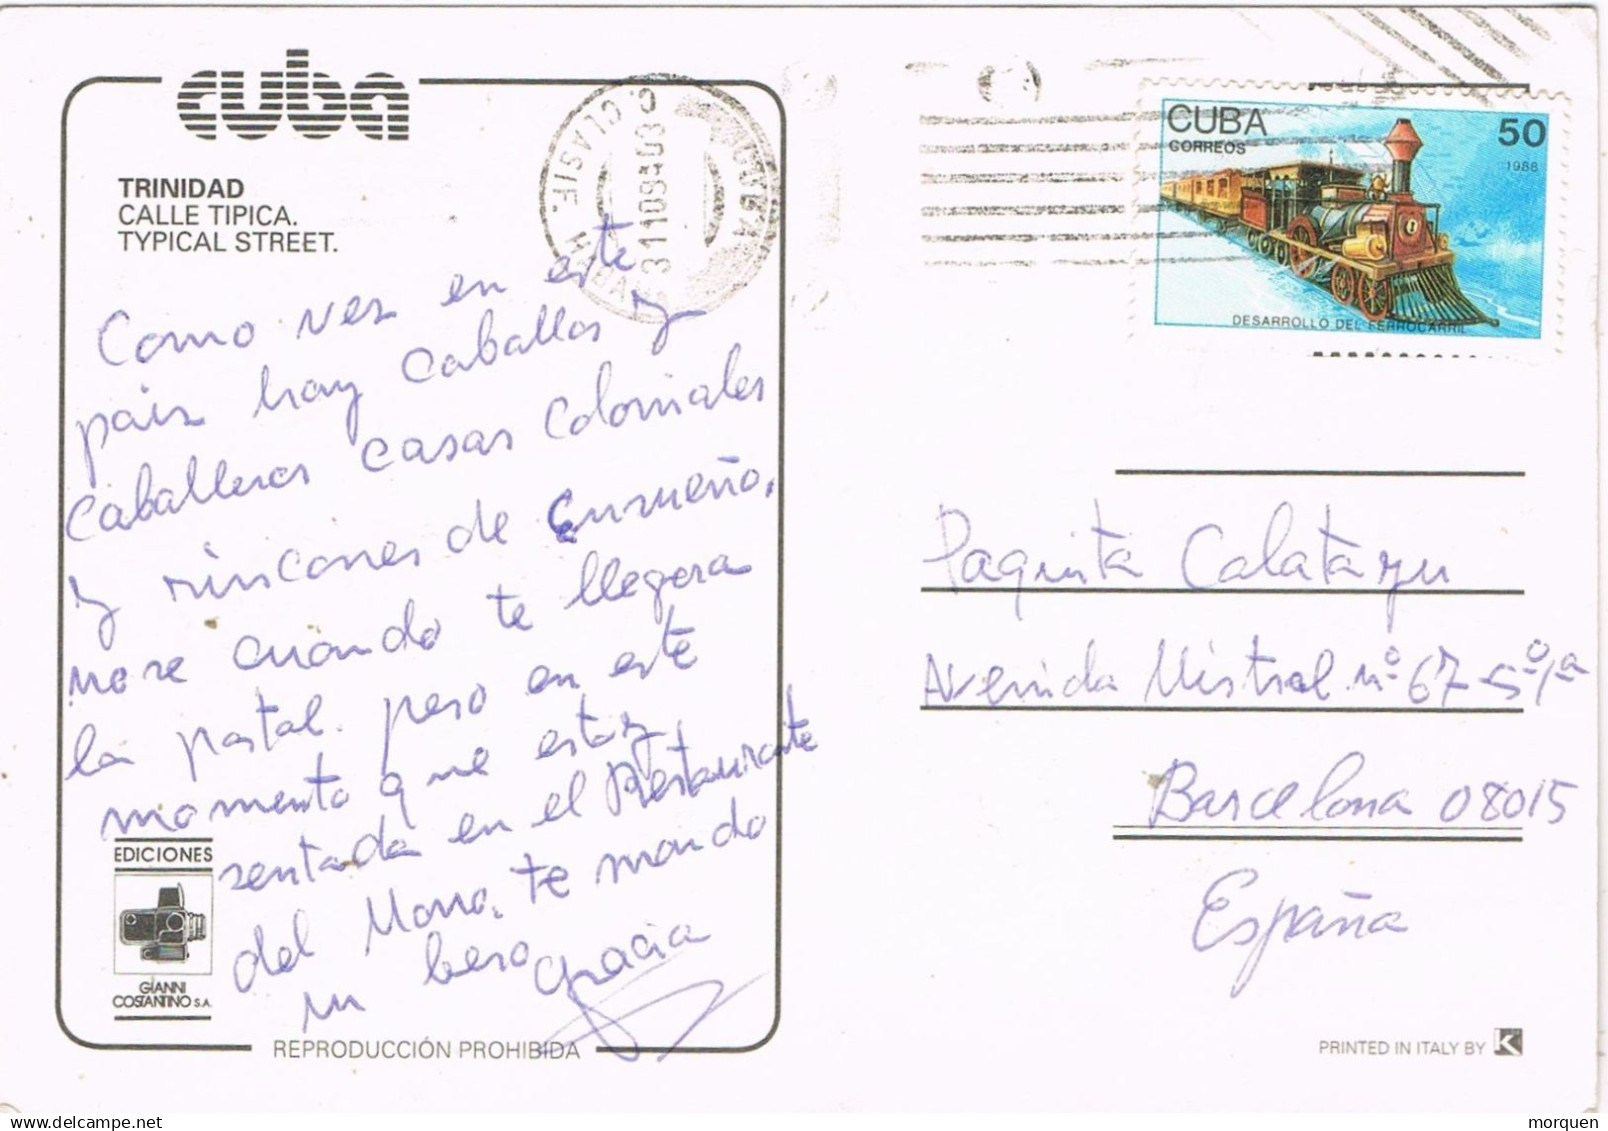 cuba
TRINIDAD
CALLE TIPICA.
TYPICAL STREET.
C. CLASIF. HABA
CUBA
CUBA
CORREOS
50
1988
DESARROLLO DEL FERROCARRIL
Como ves en este
pais hay caballos y
caballeros casas coloniales
y rincones de ensueño,
no se cuando te llegera
la postal. pero en este
momento que estoy
sentada en el Restaurante
del Morro, te mando
un beso Gracia
Paquita Calatayu
Avenida Mistral nº 67-5º1ª
Barcelona 08015
España
EDICIONES
GIANNI
COSTANTINO S.A.
REPRODUCCIÓN PROHIBIDA
PRINTED IN ITALY BY K
morquen